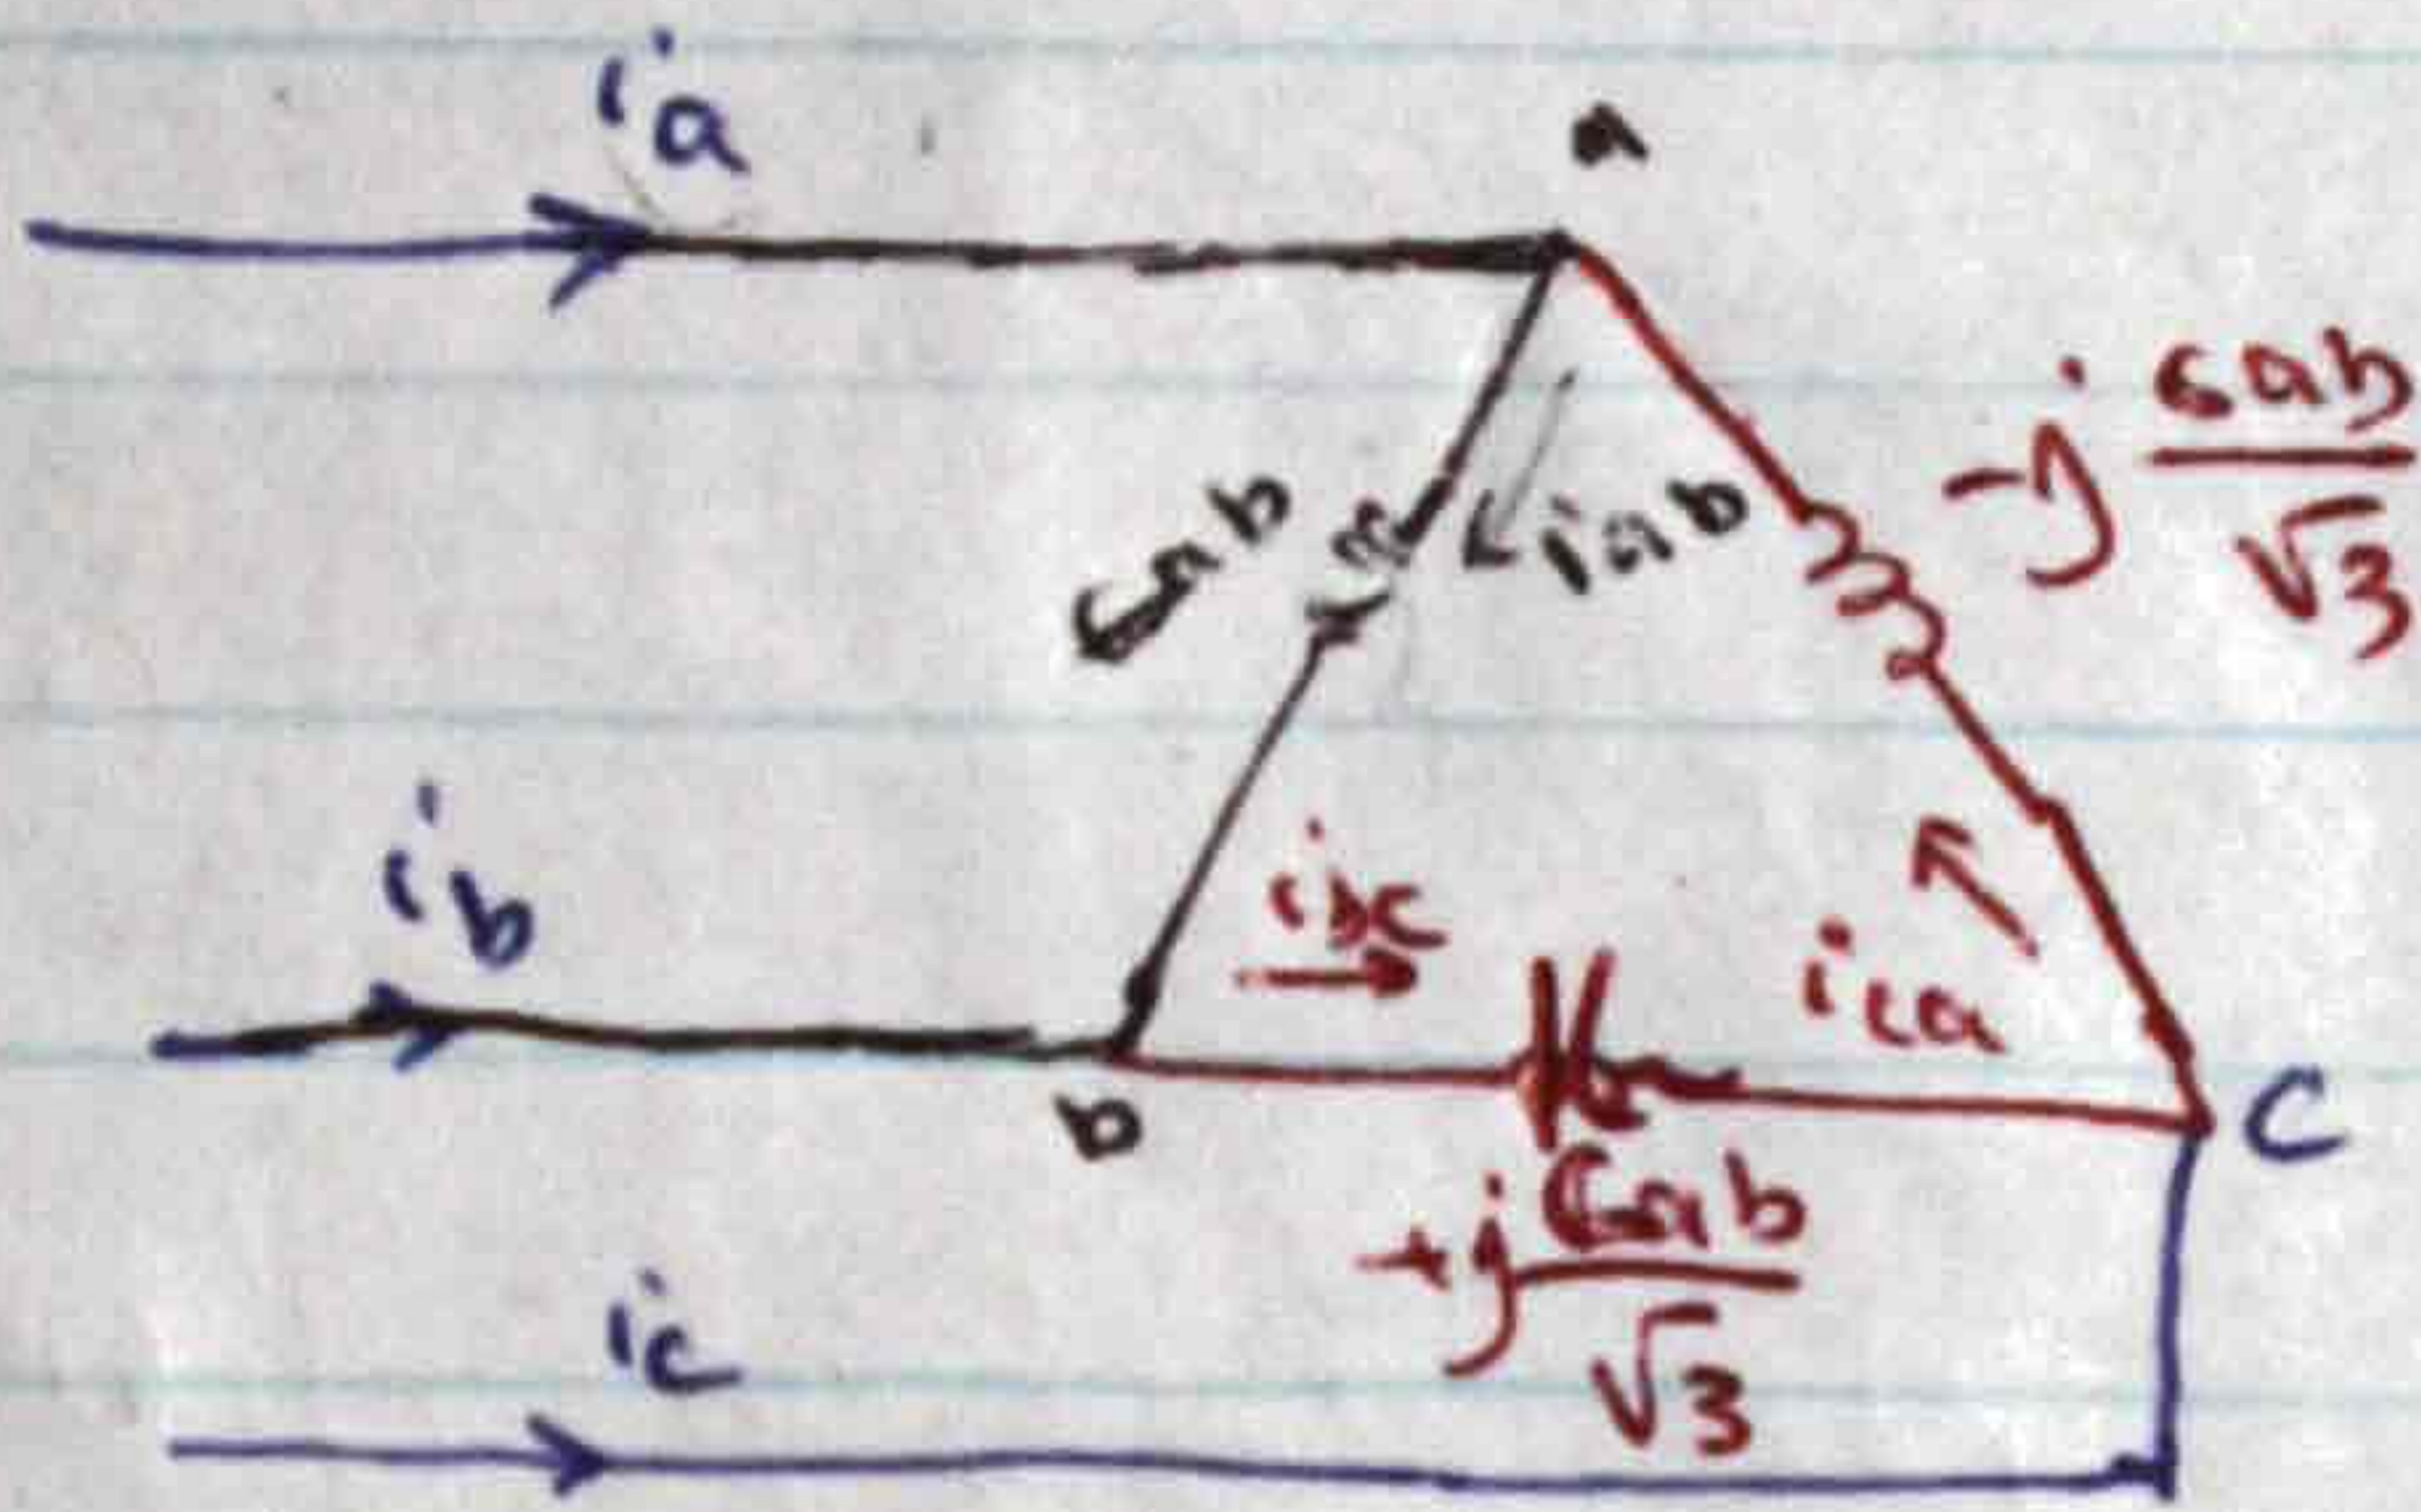 ia
a
Gab
iab
-j Gab/√3
ib
ibc
ica
b
C
+j Gab/√3
ic